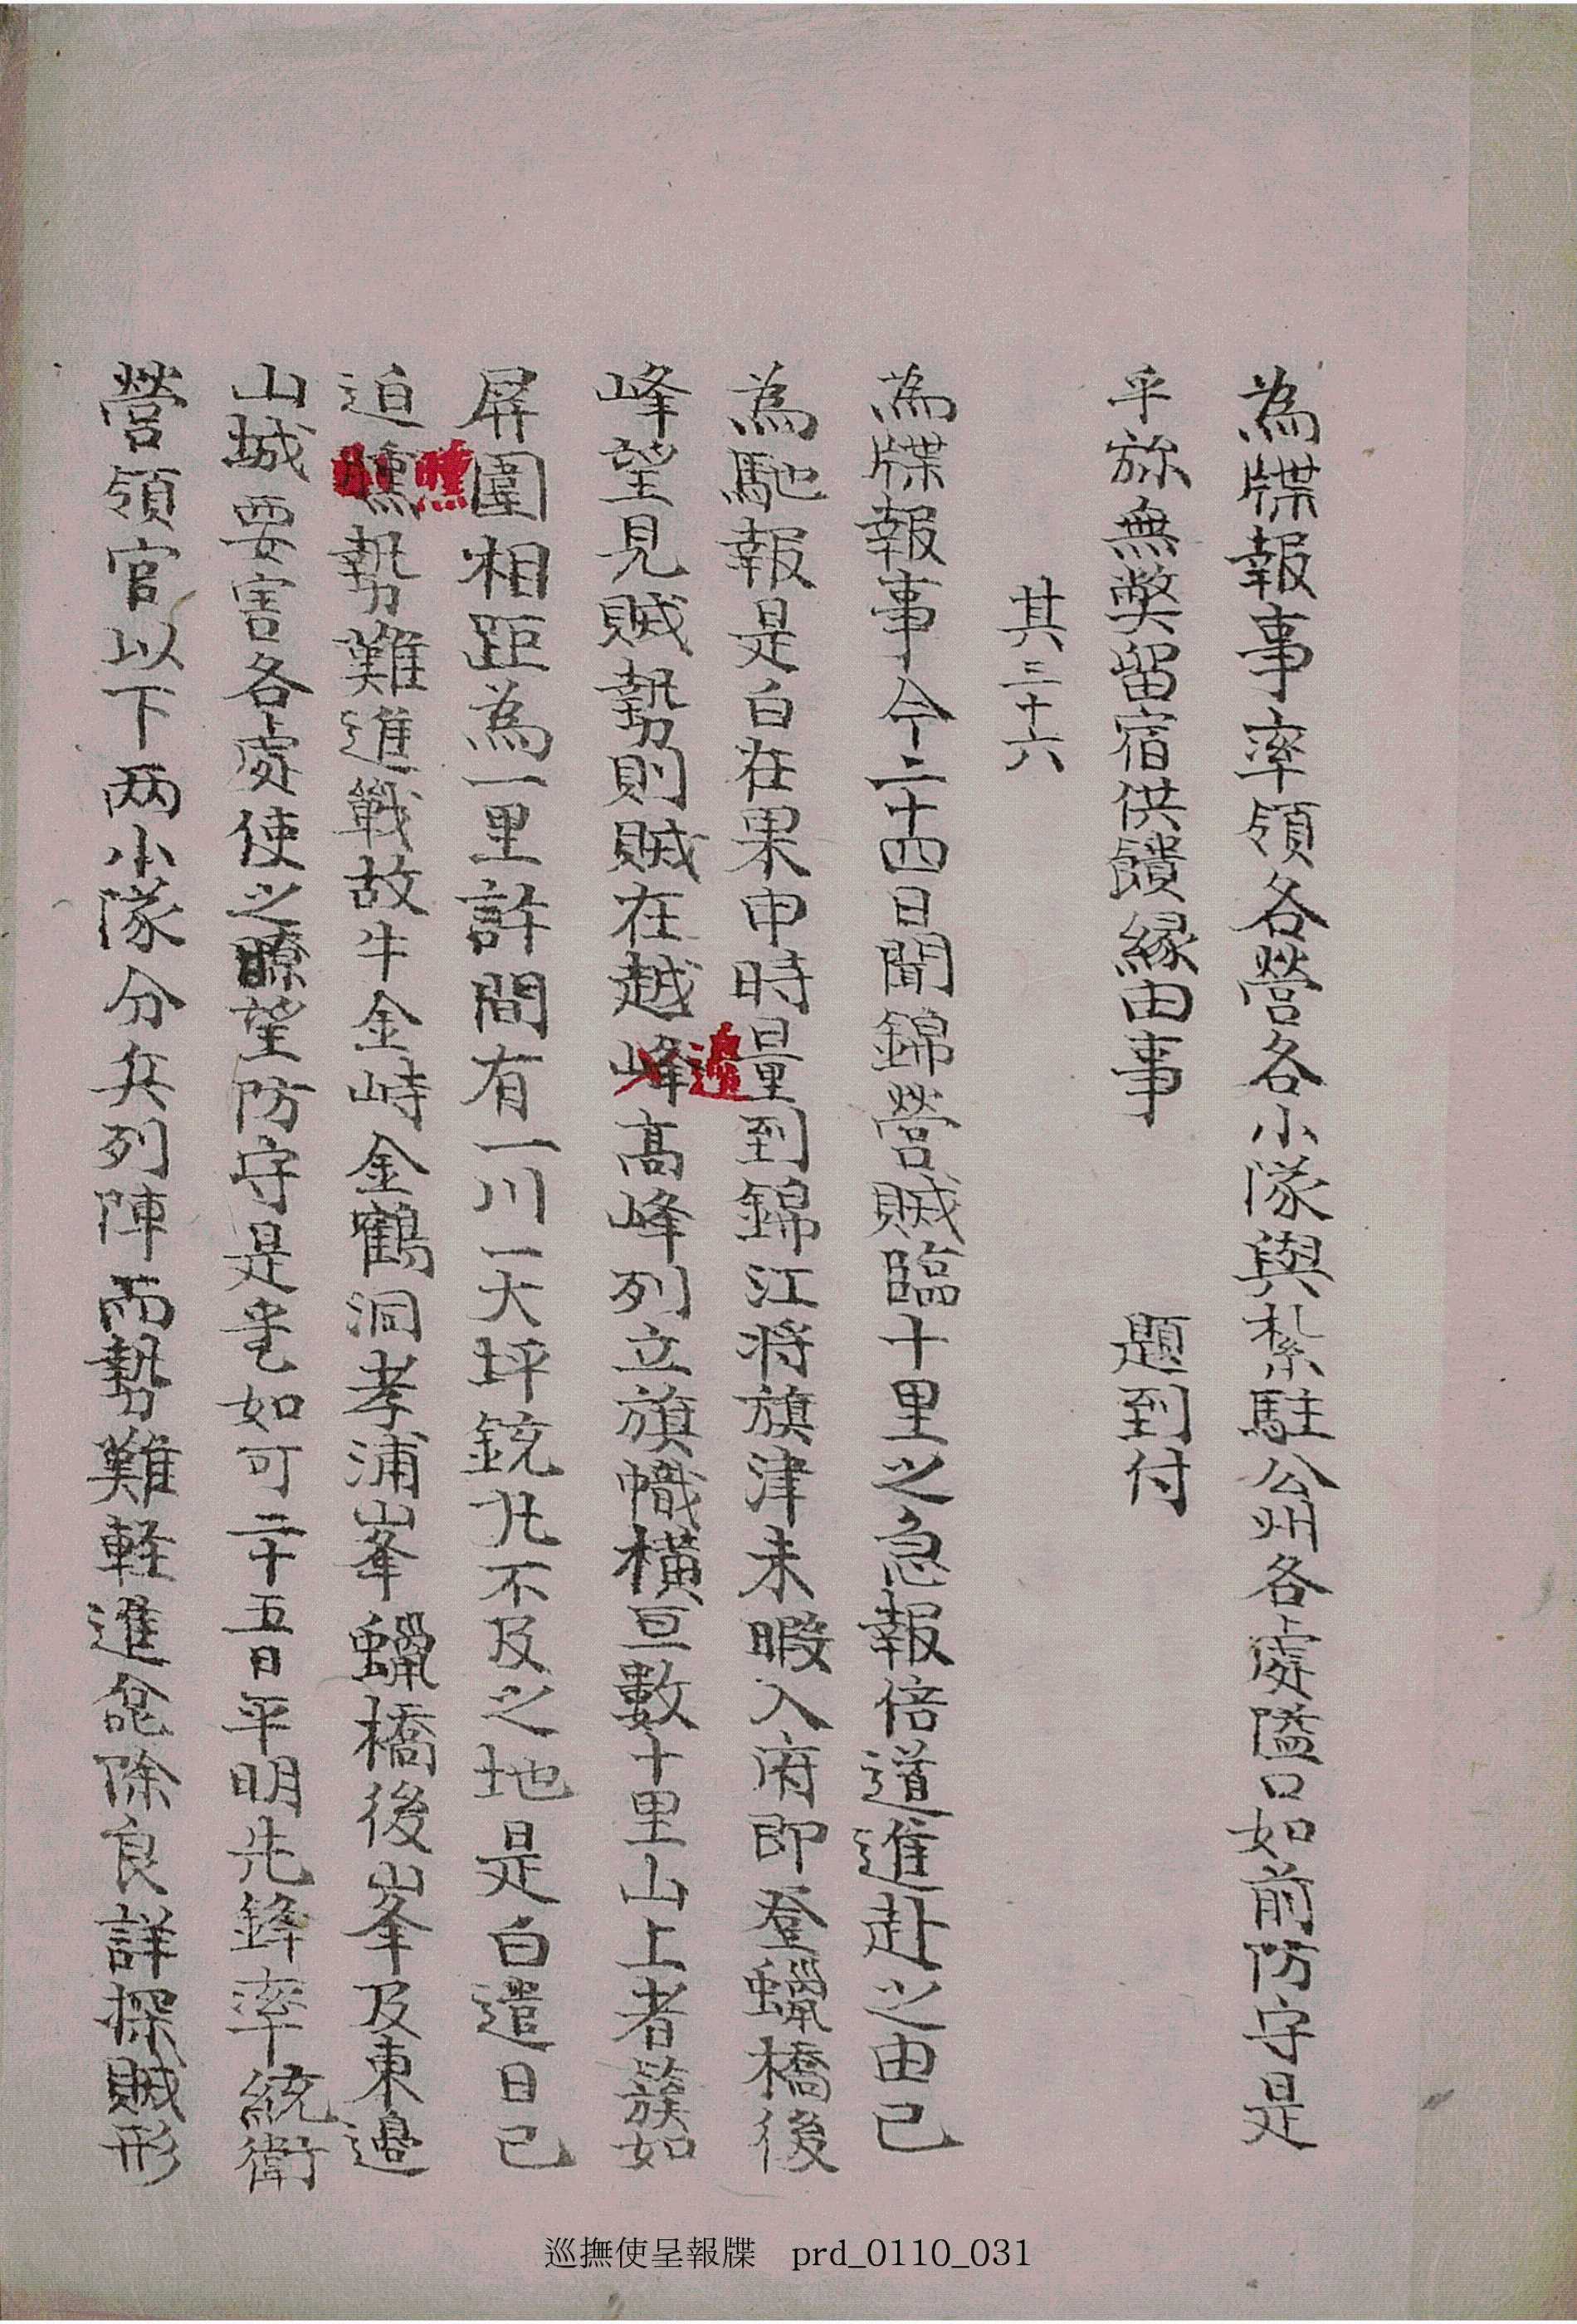 為牒報事率領各營各小隊與紮駐公州各處隘口如前防守是
乎旀無弊留宿供饋緣由事 題到付
其三十六
為牒報事今二十四日聞錦營賊臨十里之急報倍道進赴之由已
為馳報是白在果申時量到錦江將旗津未暇入府即登蠟橋後
峰望見賊勢則賊在越峰邊高峰列立旗幟橫亘數十里山上者簇如
屏圍相距為一里許間有一川一大坪銃丸不及之地是白遣日已
迫曛勢難進戰故牛金峙金鶴洞孝浦峯蠟橋後峯及東邊
山城要害各處使之瞭望防守是乎如可二十五日平明先鋒率統衛
營領官以下两小隊分兵列陣而勢難輕進兺除良詳探賊形
巡撫使呈報牒 prd_0110_031